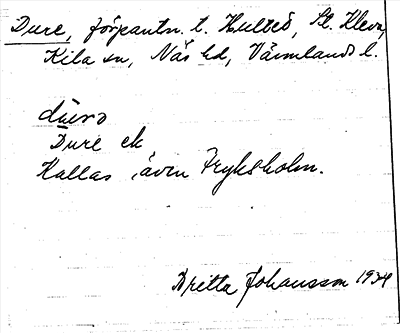 Dure, förpantn. t. Hulted, St. Kleva,
Kila sn, Näs hd, Värmlands l.
dùrə
Dure ek
Kallas även Fryksholm.
Britta Johansson 1934